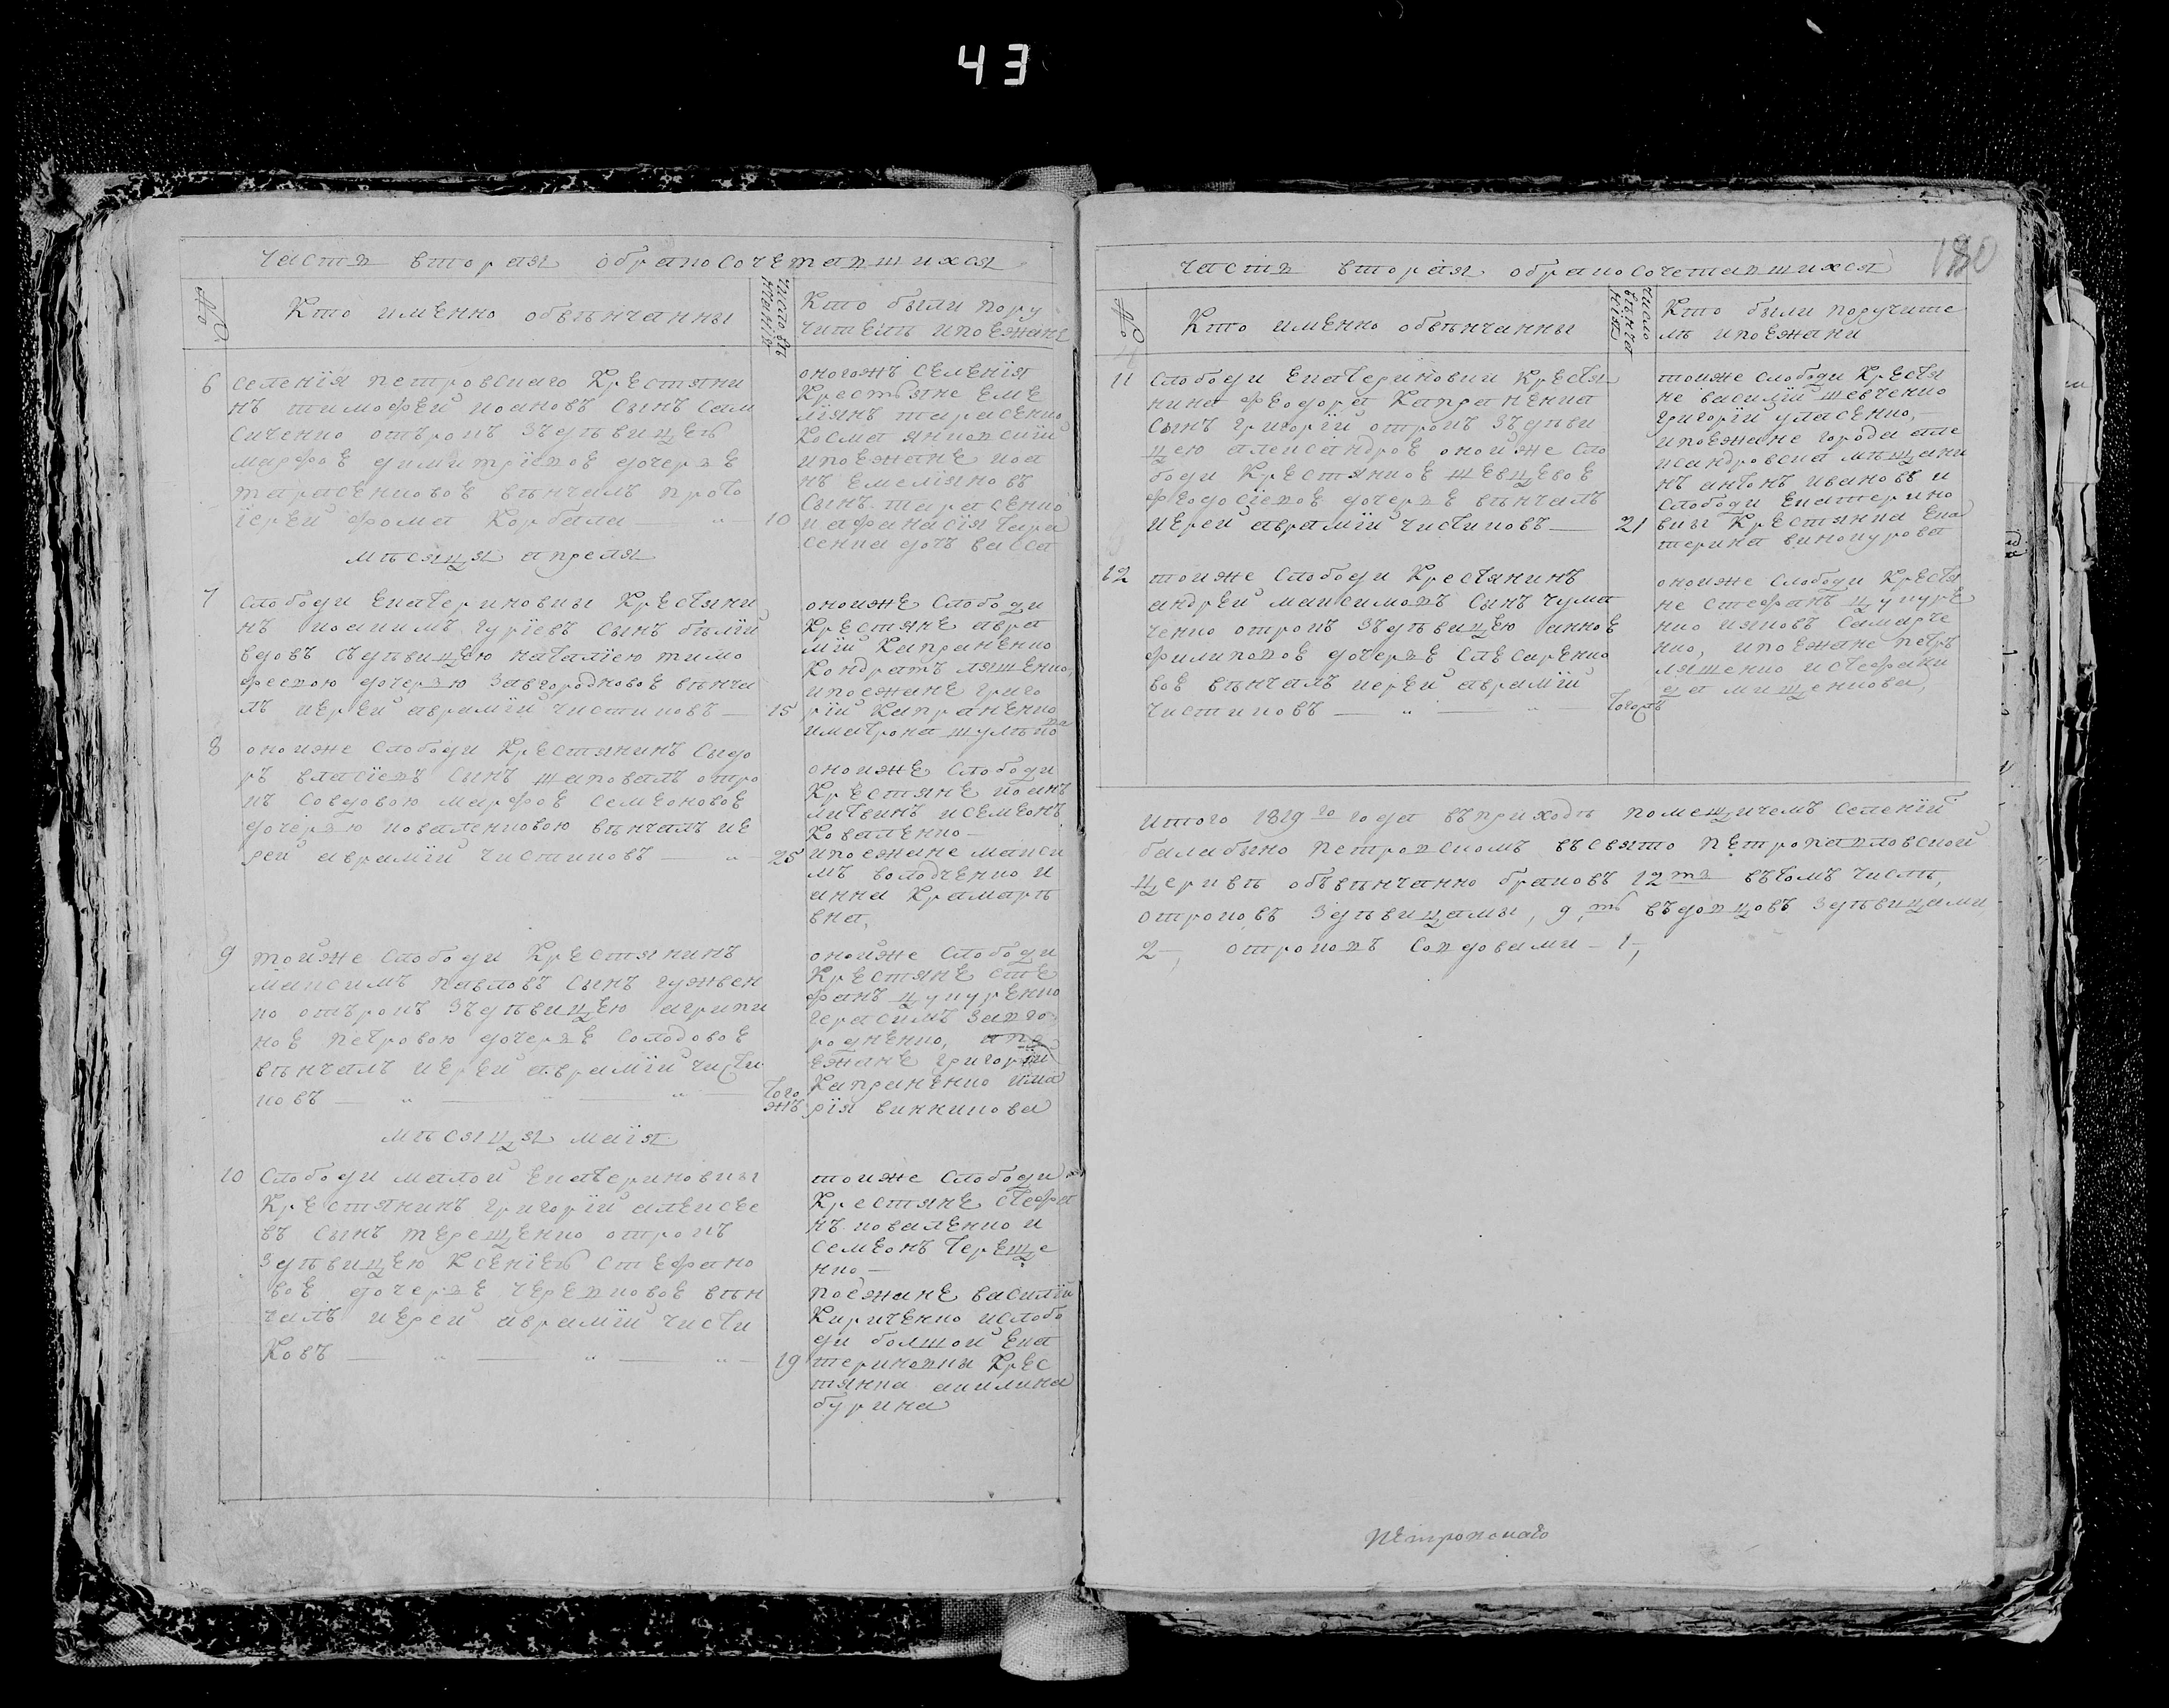 43
часть вторая обракосочетавшихся
№
Кто именно обвѣнчанны
число вѣнчанія
Кто были пору
чители ипоезжанѣ
6 селенія петровскаго Крестяни
нъ тимофей иоановъ сынъ Сам
сиченко отърокъ зъдѣвицею
марфое димитріевое дочерзе
тарасенковое вѣнчалъ прото
іерей фома Корбала — 10
оногожъ селенія
Крестьяне еме
ліянъ тарасенко
Косма янковскій
ипоезжане иоа
нъ емеліяновъ
сынъ тарасенко
иафанасія тара
сенка дочь васса
мѣсяця апреля
7 слободи екатериновки Крестяни
нъ иоакимъ гуріевъ сынъ бѣлій
вдовъ съдѣвицею наталіею тимо
феевою дочерзю завгородновое вѣнча
лъ иерей аврамій чистиковъ — 15
оноиже слободи
Крестяне авра
мій Капраненко
Кондратъ ляшенко,
ипоезжане григо
рій Капраненко
иматрона шулко
8 оноиже слободи Крестянинъ сидо
ръ власіевъ сынъ шаповалъ отро
къ совдовою марфое семеоновое
дочерзю коваленковою вѣнчалъ ие
рей аврамій чистиковъ — 25
оноиже слободи
Крестяне иоанъ
литвинъ исемеонъ
Коваленко —
ипоезжане макси
мъ володченко и
анна Крамарѣ
вна,
9 тойже слободи Крестянинъ
максимъ павловъ сынъ гужвен
ко отърокъ зъдѣвицею агрипи
ное петровою дочерзе солодовое
вѣнчалъ иерей аврамій чисти
ковъ — того жъ
онойже слободи
Крестяне сте
фанъ цукуренко
герасимъ завго
родненко, ипо
езжане григорій
Капраненко има
рія винникова
мѣсяця маія
10 Слободи малой екатериновки
Крестянинъ григорій алексее
въ сынъ терещенко отрокъ
здѣвицею Ксеніею стефано
вое дочерзе черевковое вѣн
чалъ иерей аврамій чисти
Ковъ — 19
тоиже слободи
Крестяне стефа
нъ коваленко и
семеонъ тереще
нко —
поезжане василій
Кириченко ислобо
ди болшой ека
териновки Крес
тянка акилина
бурина
180
часть вторая обракосочетавшихся
№
Кто именно обвѣнчанны
число вѣнча нія
Кто были поручите
лѣ ипоезжани
11 слободи екатериновки Крестя
нина феодора Капраненка
сынъ григорій отрокъ зъдѣви
цею александрое оноиже сло
боди Крестянкое шевцевое
феодосіевое дочерзе вѣнчалъ
иерей аврамій чистиковъ — 21
тоиже слободи Крестя
не василій шевченко
григорій уласенко,
ипоезжане города але
ксандровска мѣщани
нъ антонъ ивановъ и
слободи екатерино
вки Крестянка ека
терина винокурова
12 тоиже слободи Крестянинъ
андрей максимовъ сынъ чума
ченко отрокъ зъдѣвицею анное
филиповое дочерзе слесаренко
вое вѣнчалъ иерей аврамій
чистиковъ — тогожъ
оноиже слободи Крестя
не стефанъ цукуре
нко ияковъ самарче
нко, ипоезжане петръ
ляшенко истефани
да мищенкова,
итого 1819го года въприходѣ помещичемъ селеній
балабыно петровскомъ въсвято петропавловской
церквѣ обѣвѣнчанно браковъ 12ть вътомъ числѣ,
отроковъ здѣвицами, 9,ть въдовцовъ здѣвицами
2—, отроковъ совдовами — 1,